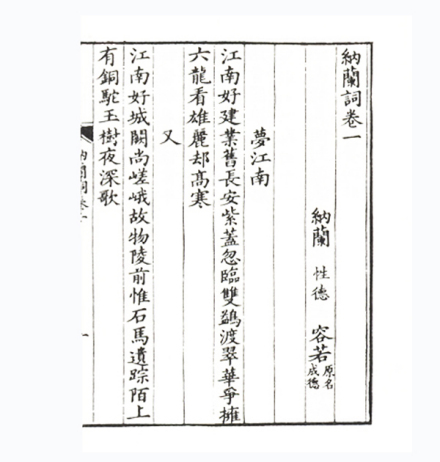 納蘭詞卷一
納蘭 性德 容若 原名成德
夢江南
江南好建業舊長安紫蓋忽臨雙鷁渡翠華爭擁
六龍看雄麗却高寒
又
江南好城闕尚嵯峨故物陵前惟石馬遺踪陌上
有銅駝玉樹夜深歌
納蘭詞卷一
一